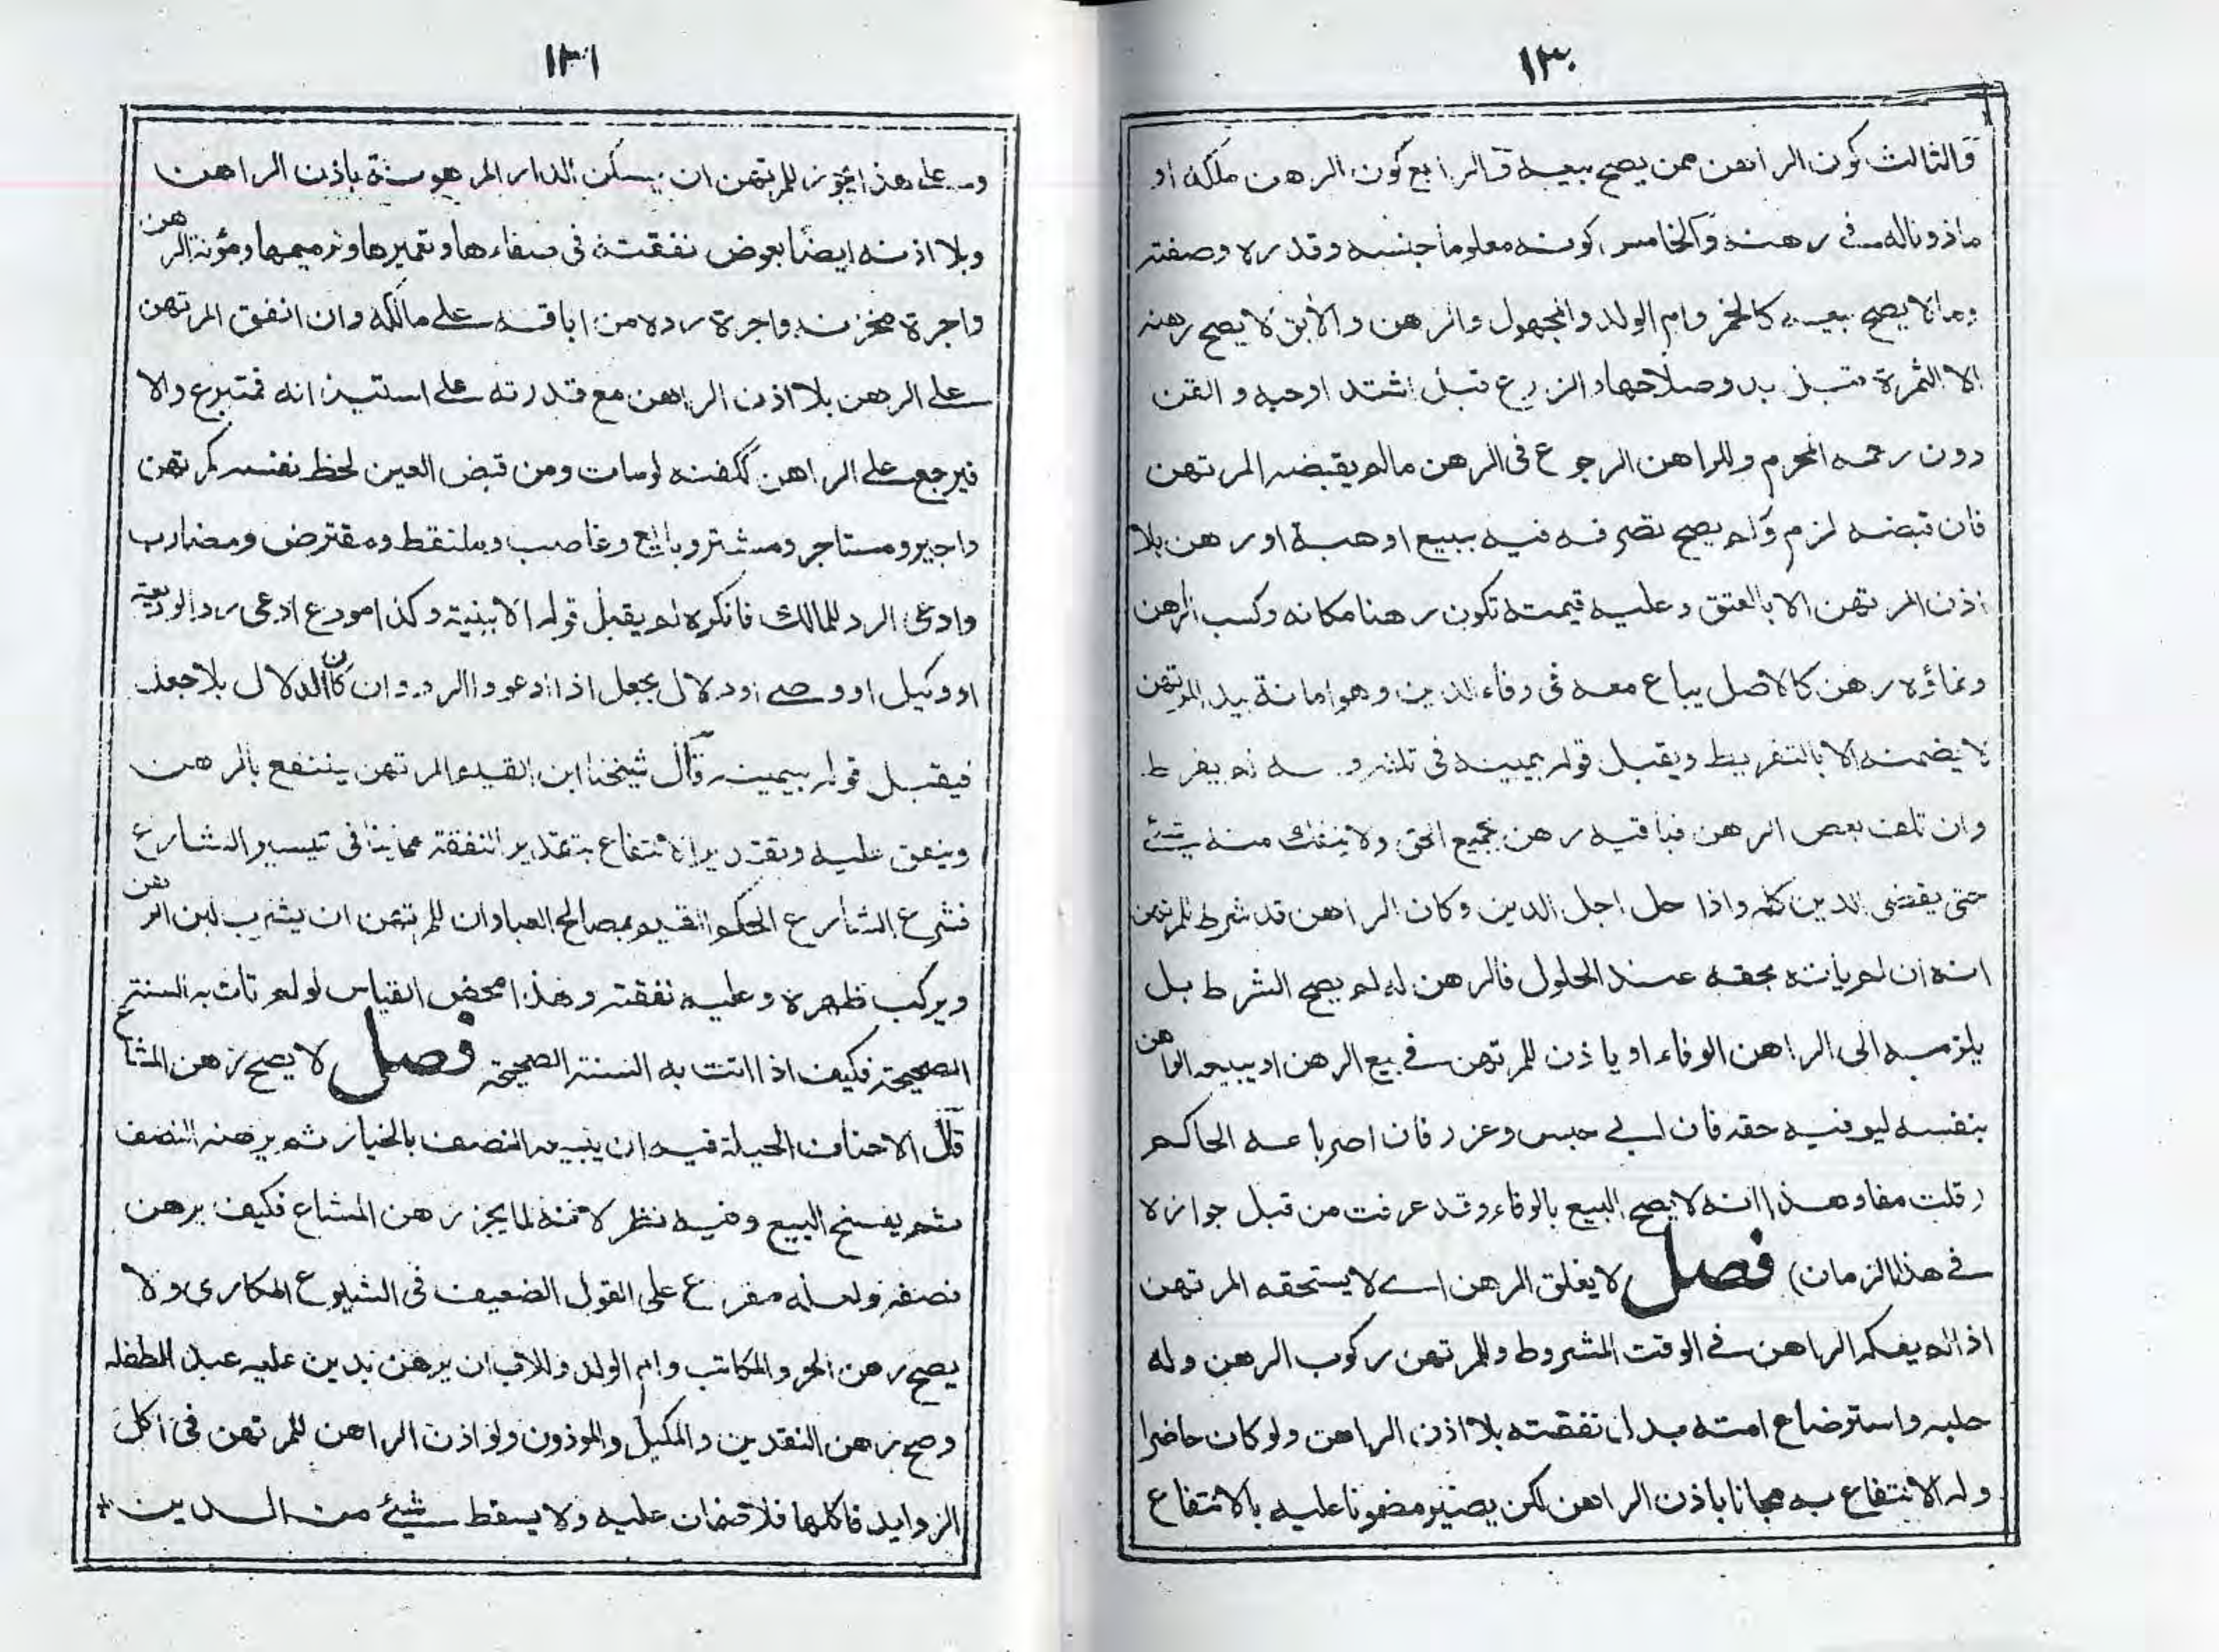 ١٣٠
والثالث كون الراهن ممن يصح بيعه والرابع كون الرهن ملكه او
ماذونا له في رهنه والخامس كونه معلوما جنسه وقدره وصفته
وما لا يصح بيعه كالخمر وام الولد والمجهول والرهن والآبق لا يصح رهنه
الا الثمرة قبل بدو صلاحها والزرع قبل اشتداد حبه والقن
دون رحمه المحرم وللراهن الرجوع في الرهن مالم يقبضه المرتهن
فان قبضه لزم ولم يصح تصرفه فيه ببيع او هبة او رهن بلا
اذن المرتهن الا بالعتق وعليه قيمته تكون رهنا مكانه وكسب الرهن
ونماؤه رهن كالاصل يباع معه في وفاء الدين وهو امانة بيد المرتهن
لا يضمنه الا بالتفريط ويقبل قوله بيمينه في تلفه و لم يفرط
وان تلف بعض الرهن فباقيه رهن بجميع الحق ولا ينفك منه شئ
حتى يقضي الدين كله واذا حل اجل الدين وكان الراهن قد شرط للمرتهن
انه ان لم ياته بحقه عند الحلول فالرهن له لم يصح الشرط بل
يلزمه الى الراهن الوفاء او ياذن للمرتهن في بيع الرهن او يبيعه الراهن
بنفسه ليوفيه حقه فان ابي حبس وعزر فان اصر باعه الحاكم
(قلت مفاد هذا انه لا يصح البيع بالوفاء وقد عرفت من قبل جوازه
في هذا الزمان) فصل لا يغلق الرهن اے لا يستحقه المرتهن
اذا لم يفكه الراهن في الوقت المشروط وللمرتهن ركوب الرهن وله
حلبه واسترضاع امته بدل نفقته بلا اذن الراهن ولو كان حاضرا
وله الانتفاع به مجانا باذن الراهن لكن يصير مضمونا عليه بالانتفاع
١٣١
وعلى هذا يجوز للمرتهن ان يسكن الدار المرهونة باذن الراهن
وبلا اذنه ايضا بعوض نفقته في صفاءها وتعميرها وترميمها ومؤنة الرهن
واجرة مخزنه واجرة رده من اباقه على مالكه وان انفق المرتهن
على الرهن بلا اذن الراهن مع قدرته على استيذانه فمتبرع والا
فيرجع على الراهن ككفنه لومات ومن قبض العين لحظ نفسه كمرتهن
واجير ومستاجر ومشتر وبايع وغاصب وملتقط ومقترض ومضارب
وادعى الرد للمالك فانكره لم يقبل قوله الا ببينة وكذا مودع ادعى رد الوديعة
او وكيل او وصي او دلال بجعل اذا ادعوا الرد وان كان الدلال بلا جعل
فيقبل قوله بيمينه قال شيخنا ابن القيم المرتهن ينتفع بالرهن
وينفق عليه وبقدير الانتفاع بتقدير النفقة مجانبا في تيسير الشارع
فشرع الشارع الحكم القيم بمصالح العباد ان للمرتهن ان يشرب لبن الرهن
ويركب ظهره وعليه نفقته وهذا محض القياس لو لم تات به السنة
الصحيحة فكيف اذا اتت به السنة الصحيحة فصل لا يصح رهن المشاع
قال الاحناف الحيلة فيه ان يبيعه النصف بالخيار ثم يرهنه النصف
ثم يفسخ البيع وفيه نظر لانه لما يجز رهن المشاع فكيف يرهن
نصفه ولعله مفرع على القول الضعيف في الشيوع الطاري ولا
يصح رهن الحر والمكاتب وام الولد وللاب ان يرهن بدين عليه عبد الطفله
وصح رهن النقدين والمكيل والموذون ولو اذن الراهن للمرتهن في اكل
الزوايد فاكلها فلا ضمان عليه ولا يسقط شيئ من الدين